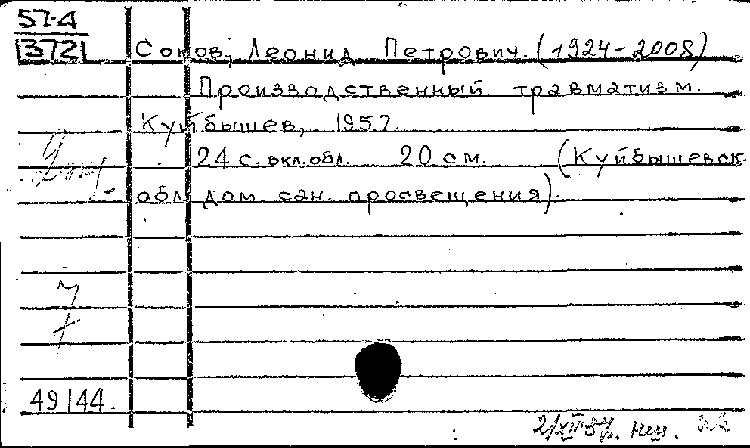 57-4
372
Соков, Леонид Петрович. (1924-2008)
Производственный травматизм.
Куйбышев, 1957.
24 с. вкл. обл. 20 см. (Куйбышевск.
обл. дом. сан. просвещения).
49144.